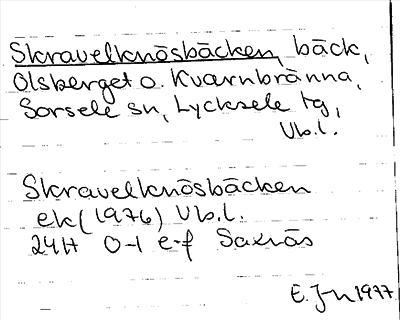 Skravelknösbäcken, bäck,
Olsberget o. Kvarnbränna,
Sorsele sn, Lycksele tg,
Vb.l.
Skravelknösbäcken
ek (1976) Vb.l.
24H 0-1 e-f Saxnäs
E. Jn 1977